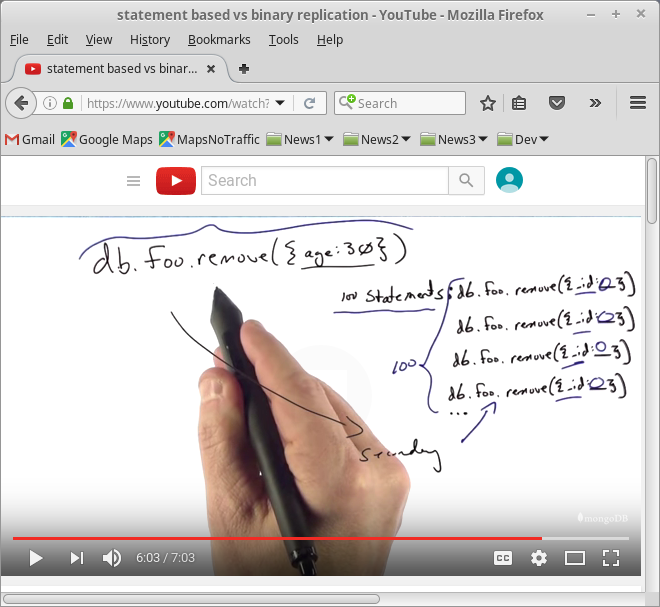 statement based vs binary replication - YouTube - Mozilla Firefox
File Edit View History Bookmarks Tools Help
statement based vs binar...
https://www.youtube.com/watch? Search
Gmail Google Maps MapsNoTraffic News1 News2 News3 Dev
Search
db.foo.remove({age:30})
100 Statements: db.foo.remove({_id:0})
db.foo.remove({_id:0})
100 db.foo.remove({_id:0})
db.foo.remove({_id:0})
...
secondary
mongoDB
6:03 / 7:03
CC